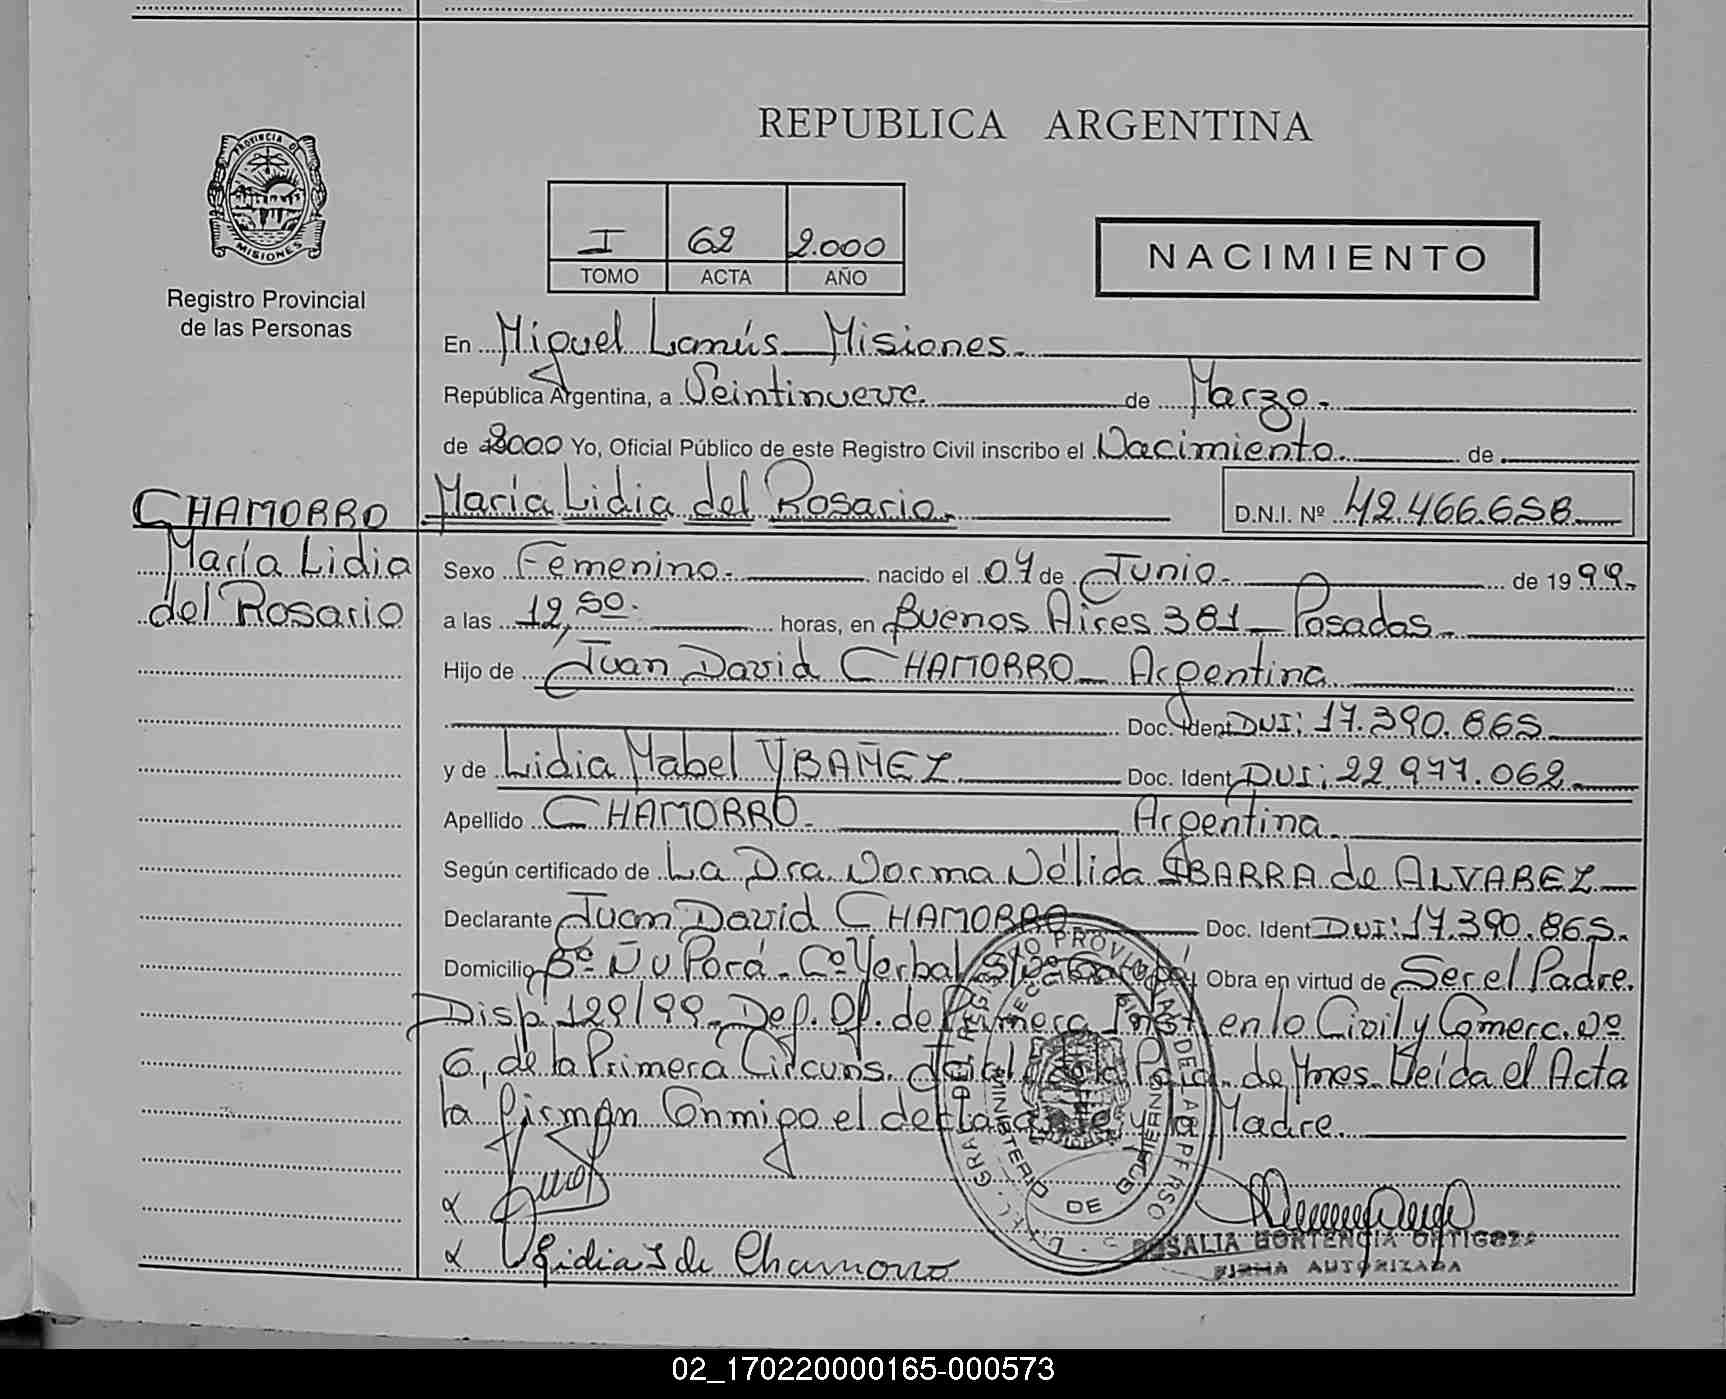 REPUBLICA ARGENTINA
PROVINCIA DE
MISIONES
Registro Provincial
de las Personas
I 62 2.000
TOMO ACTA AÑO
NACIMIENTO
En Miguel Lanús Misiones.
República Argentina, a Veintinueve. de Marzo.
de 2000 Yo, Oficial Público de este Registro Civil inscribo el Nacimiento. de
CHAMORRO
María Lidia
del Rosario
María Lidia del Rosario. D.N.I. Nº 42.466.658
Sexo Femenino. nacido el 07 de Junio. de 1999.
a las 12,50. horas, en Buenos Aires 381 Posadas.
Hijo de Juan David CHAMORRO Argentina
Doc. Ident DNI: 17.390.865
y de Lidia Mabel YBAÑEZ Doc. Ident DNI: 22.977.062
Apellido CHAMORRO. Argentina.
Según certificado de La Dra. Norma Nélida IBARRA de ALVAREZ
Declarante Juan David CHAMORRO Doc. Ident DNI: 17.390.865.
Domicilio Bº Ñu Porá. Cº Yerbal Obra en virtud de Ser el Padre.
Disp. 129/99. Def. Of. de Primera Inst. en lo Civil y Comerc. Nº
6, de la Primera Circuns. de la de Mnes. Leída el Acta
la firman Conmigo el declarante y la Madre.
Lidia Y de Chamorro
ROSALIA HORTENCIA ORTIGOZA
FIRMA AUTORIZADA
MINISTERIO DE GOBIERNO
02_170220000165-000573